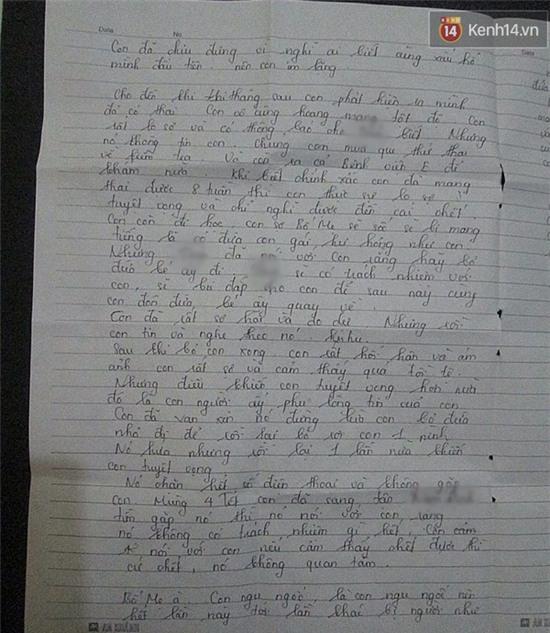 14 Kenh14.vn
Date No
Date
Con đã chịu đựng vì nghĩ ai biết cũng xấu hổ
mình đầu tiên nên con im lặng.
Cho đến khi tháng sau con phát hiện ra mình
đã có thai. Con vô cùng hoang mang tột độ. Con
rất lo sợ và có thông báo cho biết. Nhưng
nó không tin con. Chúng con mua que thử thai
về kiểm tra. Và con ra cả Bệnh viện E để
khám nữa. Khi biết chính xác con đã mang
thai được 8 tuần thì con thực sự lo sợ
tuyệt vọng và chỉ nghĩ được đến cái chết.
Con còn đi học, con sợ Bố Mẹ sẽ sốc, sẽ bị mang
tiếng là có đứa con gái hư hỏng như con.
Nhưng đã nói với con rằng hãy bỏ
đứa bé ấy đi sẽ có trách nhiệm với
con, sẽ bù đắp cho con để sau này cùng
con đón đứa bé ấy quay về.
Con đã rất sợ hãi và do dự. Nhưng rồi
con tin và nghe theo nó.
Sau khi bỏ con xong con rất hối hận và ám
ảnh con rất sợ và cảm thấy quá tồi tệ.
Nhưng điều khiến con tuyệt vọng hơn nữa
đó là con người ấy phụ lòng tin của con
Con đã van xin nó đừng lừa con bỏ đứa
nhỏ đi để rồi lại bỏ rơi con 1 mình
Nó hứa nhưng rồi lại 1 lần nữa khiến
con tuyệt vọng.
Nó chặn hết số điện thoại và không gặp
con. Mùng 4 Tết con đã sang tận
tìm gặp nó thì nó nói với con rằng
nó không có trách nhiệm gì hết. Còn
nói với con nếu cảm thấy chết được thì
cứ chết, nó không quan tâm.
Bố Mẹ à. Con ngu ngốc, là con ngu ngốc nên
hết lần này tới lần khác bị người như
AN KHÁNH
AN KHÁNH